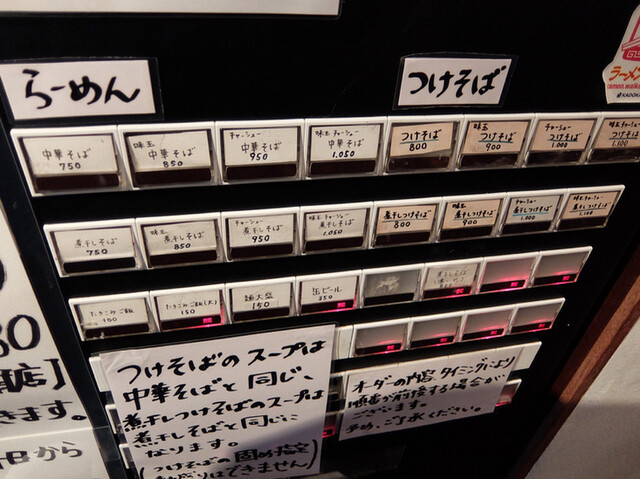 らーめん
つけそば
ラーメン
中華そば
750
味玉
中華そば
850
チャーシュー
中華そば
950
味玉チャーシュー
中華そば
1.050
つけそば
800
味玉
つけそば
900
チャーシュー
つけそば
1.000
味玉チャーシュー
つけそば
1.100
煮干しそば
750
味玉
煮干しそば
850
チャーシュー
煮干しそば
950
味玉チャーシュー
煮干しそば
1.050
煮干しつけそば
800
味玉
煮干しつけそば
900
チャーシュー
煮干しつけそば
1.000
味玉チャーシュー
煮干しつけそば
1.100
たきこみご飯
たきこみご飯(大)
150
麺大盛
150
缶ビール
350
つけそばのスープは
中華そばと同じ、
煮干しつけそばのスープは
煮干しそばと同じに
なります。
(つけそばの固め指定
はできません)
オーダーの内容、タイミングにより
順番が前後する場合が
ございます。
予め、ご了承ください。
店】
きます。
日から